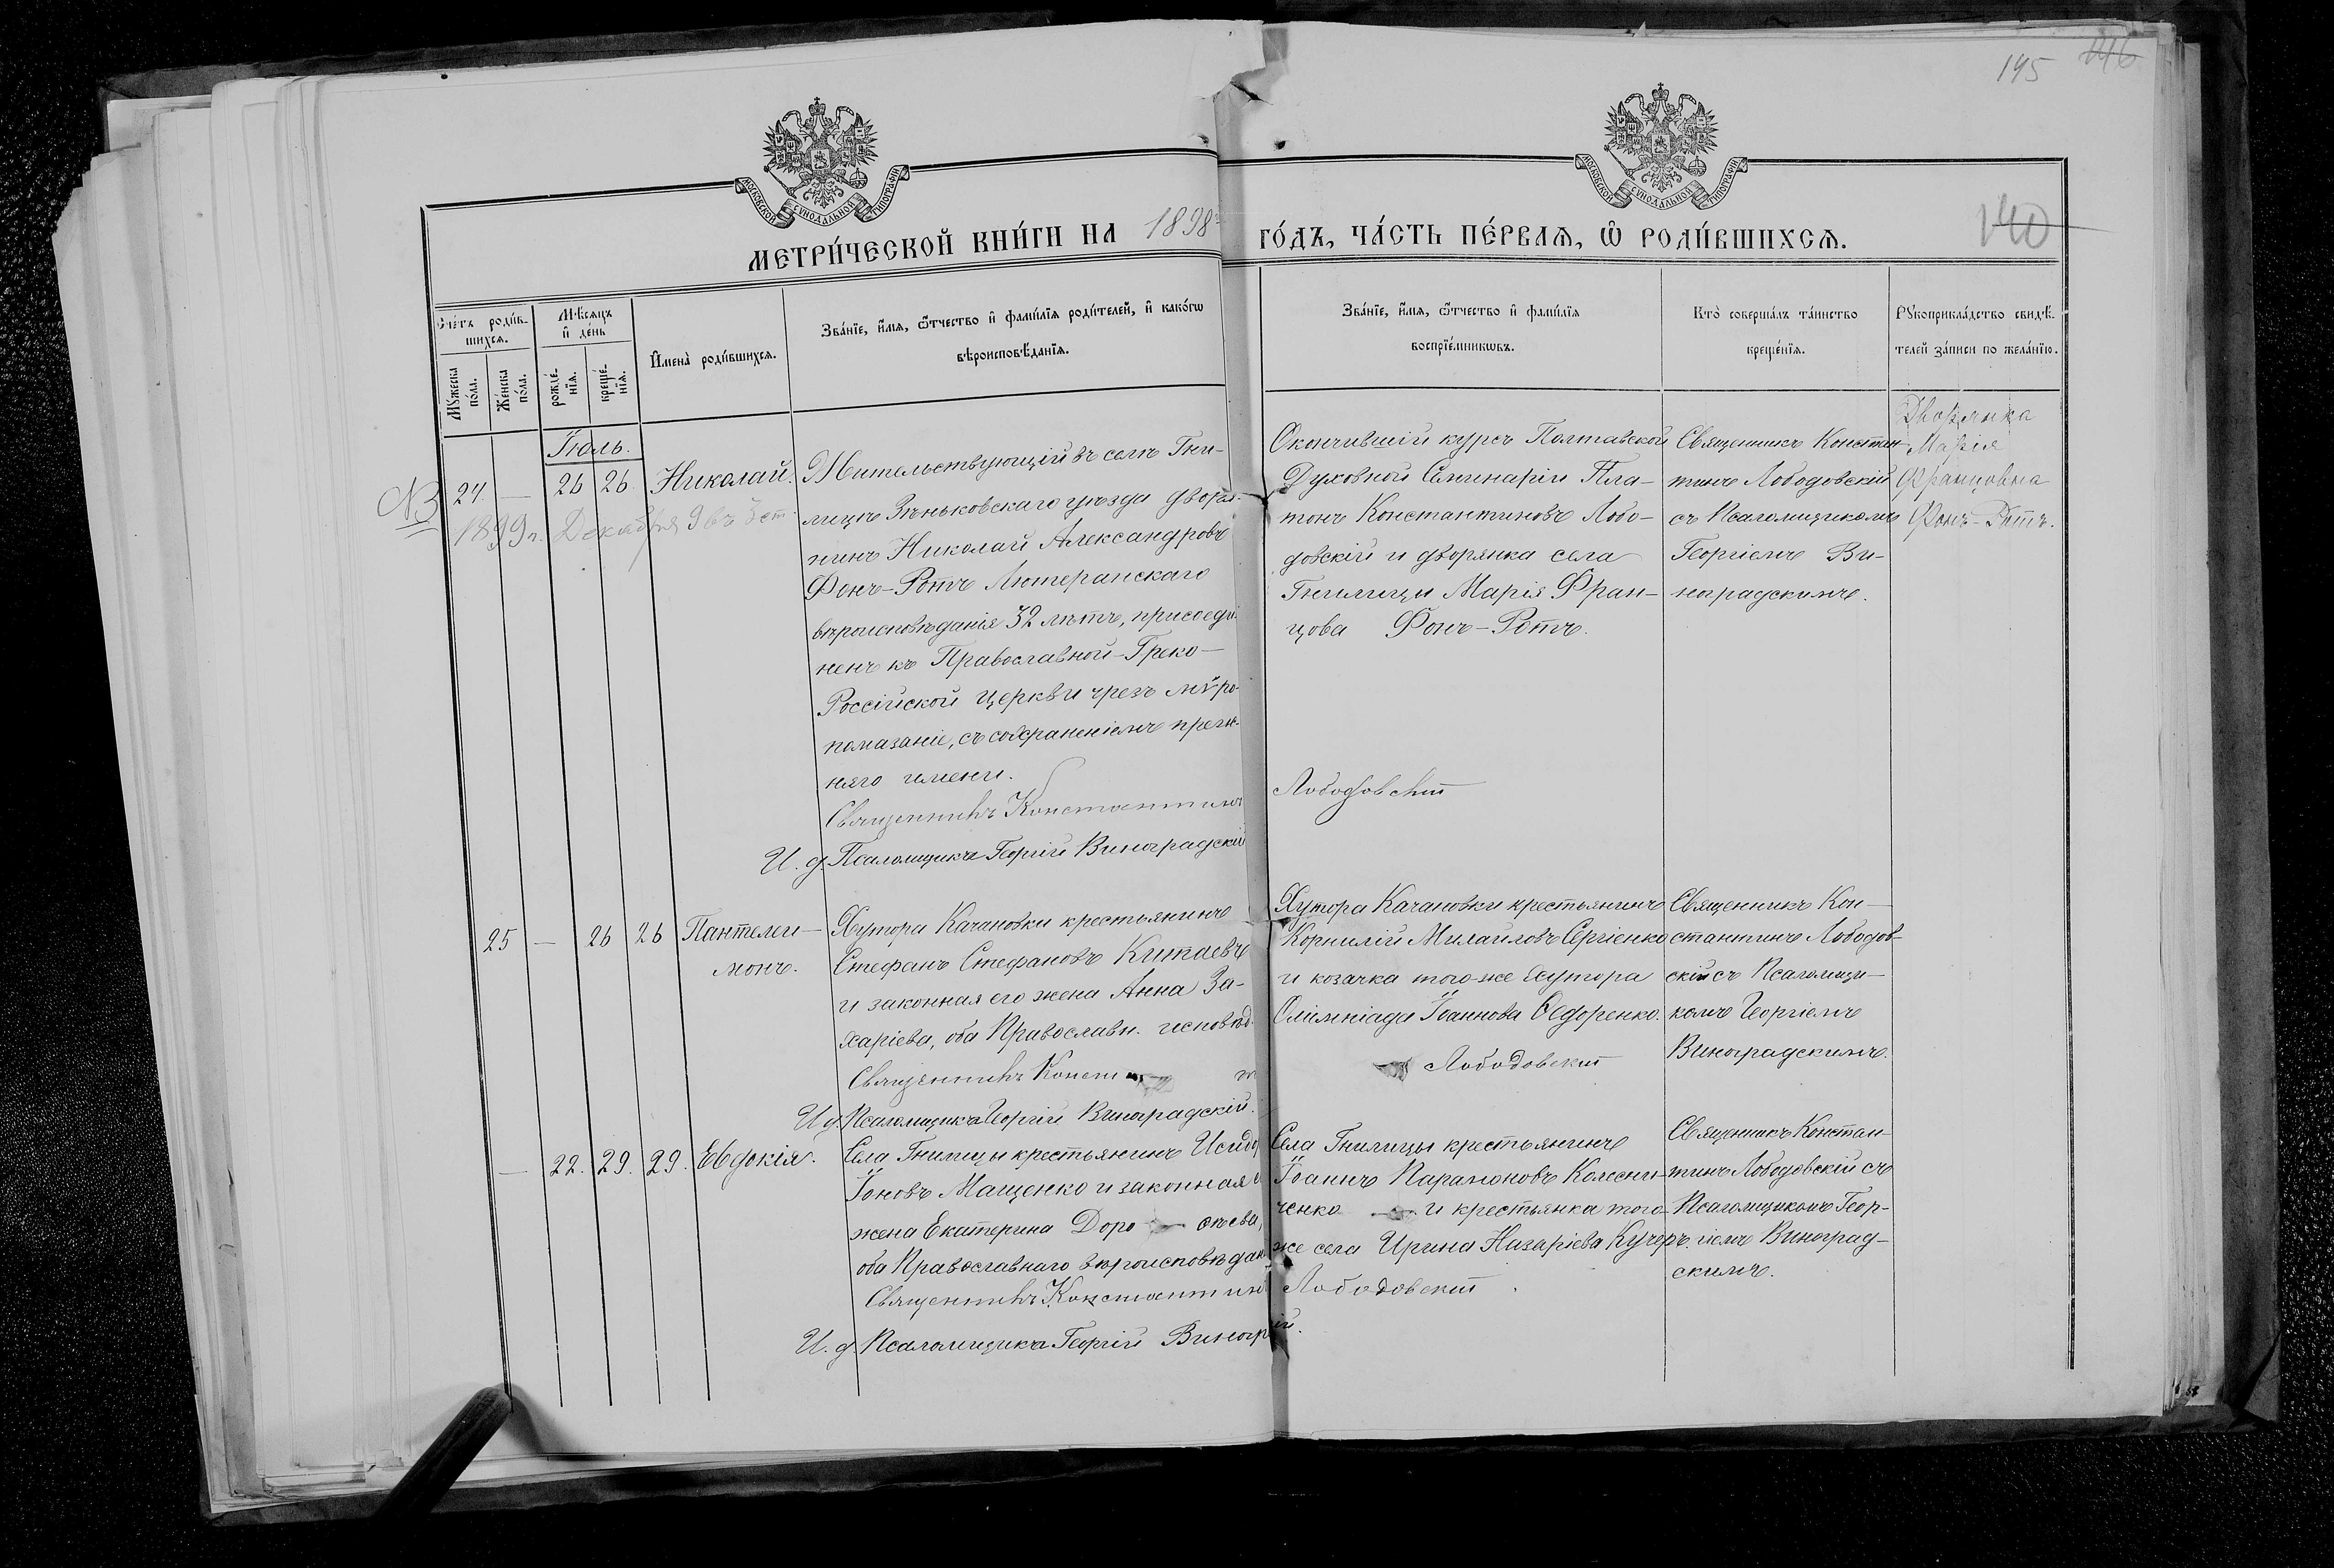 145 146
МОСКОВСКОЙ СѴНОДАЛЬНОЙ ТИПОГРАФІИ
МОСКОВСКОЙ СѴНОДАЛЬНОЙ ТИПОГРАФІИ
МЕТРИ́ЧЕСКОЙ КНИ́ГИ НА 1898 ГО́ДЪ, ЧА́СТЬ ПЕ́РВАѦ, Ѽ РОДИ́ВШИХСѦ.
140
Сче́тъ роди́в-
шихсѧ.
Мꙋ́жеска по́ла.
Же́нска по́ла.
Мѣ́сяцъ и҆ де́нь
рожде́-нїѧ.
креще́-нїѧ.
И҆мена̀ роди́вшихсѧ.
Зва́нїе, и҆́мѧ, ѻ҆́тчество и҆ фами́лїѧ роди́телей, и҆ како́гѡ
вѣроисповѣ́данїѧ.
Зва́нїе, и҆́мѧ, ѻ҆́тчество и҆ фами́лїѧ
воспрїе́мникѡвъ.
Кто̀ соверша́лъ та́инство
креще́нїѧ.
Рꙋкоприкла́дство свидѣ́-
телей за́писи по жела́нїю.
Іюль.
№3 24. — 26 26 Николай.
1899 г. Декабря 9
Жительствующій въ селѣ Гни-
лицѣ Зѣньковскаго уѣзда дворя-
нинъ Николай Александровъ
Фонъ-Ротъ Лютеранскаго
вѣроисповѣданія 32 лѣтъ, присоеди-
ненъ къ Православной-Греко-
Россійской Церкви чрезъ мѵро-
помазаніе, съ сохраненіемъ преж-
няго имени.
Священникъ Константинъ Лободовскій
И. д. Псаломщика Георгій Виноградскій
Окончившій курсъ Полтавской
Духовной Семинаріи Пла-
тонъ Константиновъ Лобо-
довскій и дворянка села
Гнилицы Марія Фран-
цова Фонъ-Ротъ.
Священникъ Констан-
тинъ Лободовскій
съ Псаломщикомъ
Георгіемъ Ви-
ноградскимъ.
Дворянка
Марія
Францовна
Фонъ-Ротъ.
25 — 26 26 Пантелеи-
монъ.
Хутора Качановки крестьянинъ
Стефанъ Стефановъ Китаевъ
и законная его жена Анна За-
харіева, оба Православн. исповѣд.
Священникъ Конст Лободовскій
И. д. Псаломщика Георгій Виноградскій.
Хутора Качановки крестьянинъ
Корнилій Михаиловъ Сергіенко
и козачка того-же хутора
Олимпіада Іоаннова Ѳедоренко.
Священникъ Кон-
стантинъ Лободов-
скій съ Псаломщи-
комъ Георгіемъ
Виноградскимъ.
— 22. 29. 29. Евдокія.
Села Гнилицы крестьянинъ Исидо
Іоновъ Мащенко и законная
жена Екатерина Доро ѳеева,
оба Православнаго вѣроисповѣдан
Священникъ Константинъ Лободовскій
И. д. Псаломщика Георгій Виногр ій.
Села Гнилицы крестьянинъ
Іоаннъ Парамоновъ Колесни-
ченко и крестьянка того-
же села Ирина Назаріева Кучеръ.
Священникъ Констан-
тинъ Лободовскій съ
Псаломщикомъ Геор-
гіемъ Виноград-
скимъ.